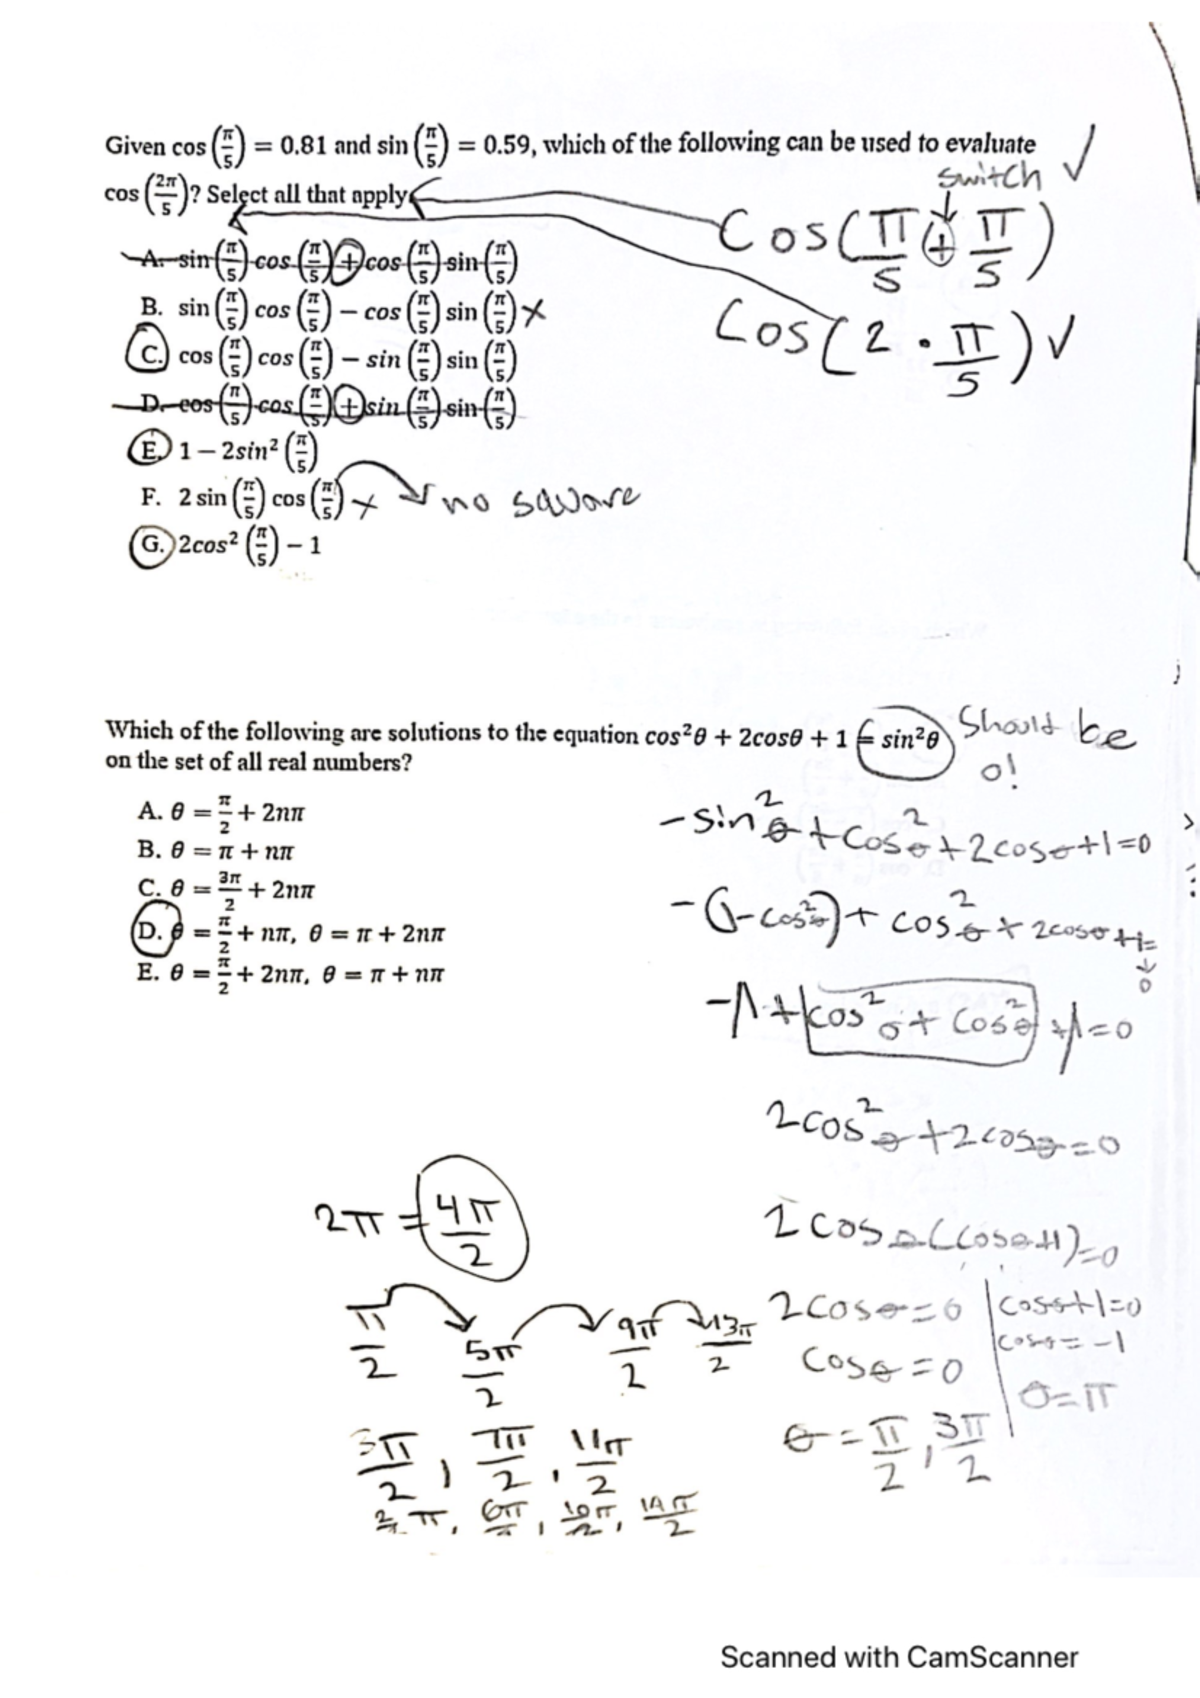 Given cos (π/5) = 0.81 and sin (π/5) = 0.59, which of the following can be used to evaluate ✓
cos (2π/5)? Select all that apply
switch
Cos(π/5 + π/5)
Cos(2 · π/5) ✓
A. sin (π/5) cos (π/5) + cos (π/5) sin (π/5)
B. sin (π/5) cos (π/5) − cos (π/5) sin (π/5) X
C. cos (π/5) cos (π/5) − sin (π/5) sin (π/5)
D. cos (π/5) cos (π/5) + sin (π/5) sin (π/5)
E. 1 − 2sin² (π/5)
F. 2 sin (π/5) cos (π/5) X no square
G. 2cos² (π/5) − 1
Which of the following are solutions to the equation cos²θ + 2cosθ + 1 = sin²θ
on the set of all real numbers?
Should be
0!
A. θ = π/2 + 2nπ
B. θ = π + nπ
C. θ = 3π/2 + 2nπ
D. θ = π/2 + nπ, θ = π + 2nπ
E. θ = π/2 + 2nπ, θ = π + nπ
-sin²θ + cos²θ + 2cosθ + 1 = 0
-(1-cos²θ) + cos²θ + 2cosθ + 1 =
0
-1 + cos²θ + cos²θ + 1 = 0
2cos²θ + 2cosθ = 0
2cosθ(cosθ+1)=0
2cosθ=0 | cosθ+1=0
cosθ=0 | cosθ=-1
θ = π/2, 3π/2 | θ=π
2π = 4π/2
π/2 5π/2 9π/2 13π/2
3π/2, 7π/2, 11π/2
2/2 π, 6π/2, 10π/2, 14π/2
Scanned with CamScanner